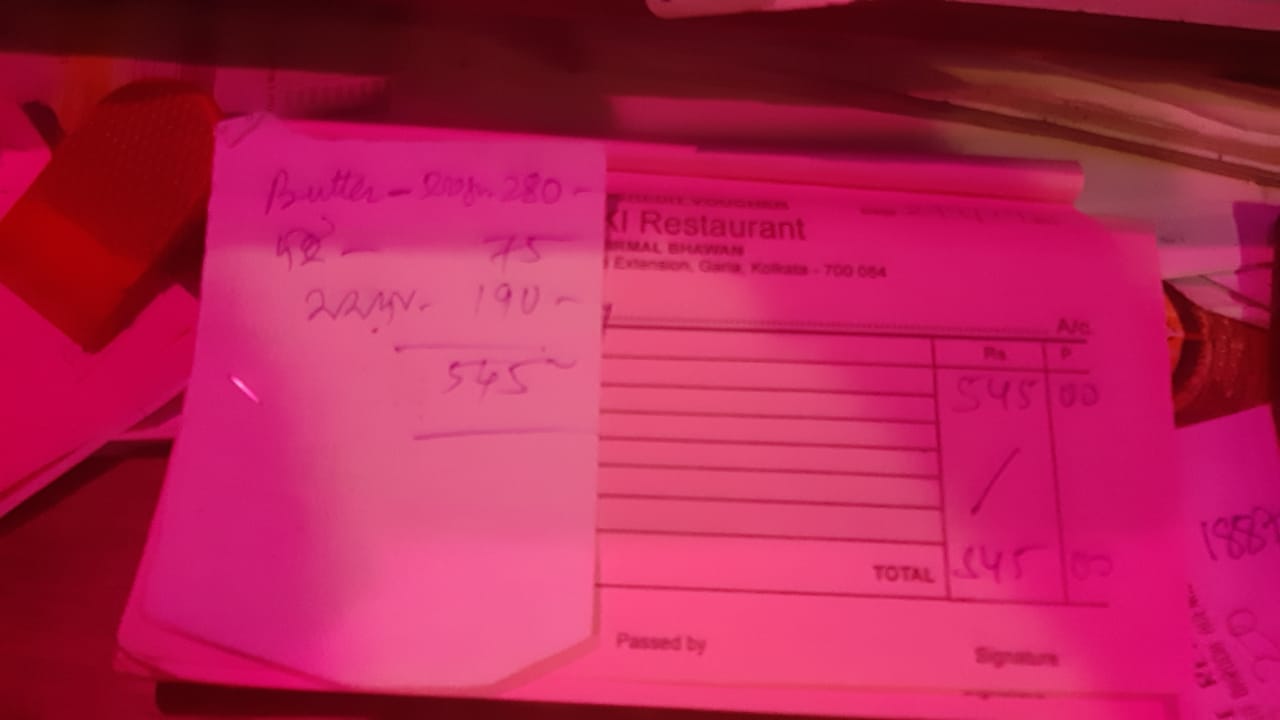 Butter - 500gm 280 -
75
190 -
545
CREDIT VOUCHER
XI Restaurant
IRMAL BHAWAN
Extension, Garia, Kolkata - 700 084
A/c.
Rs. P.
545 00
TOTAL 545 00
Passed by Signature
188